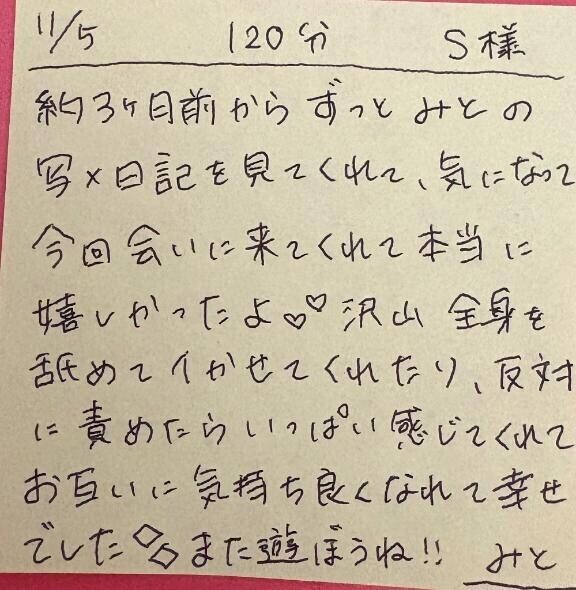 11/5 120分 S様
約3ヶ月前からずっとみとの
写×日記を見てくれて、気になって
今回会いに来てくれて本当に
嬉しかったよ♡♡沢山全身を
舐めてイかせてくれたり、反対
に責めたらいっぱい感じてくれて
お互いに気持ち良くなれて幸せ
でした◇◇また遊ぼうね!! みと